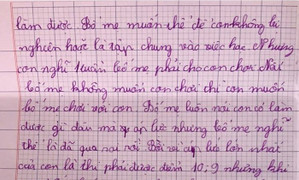 làm được. Bố mẹ muốn thế để con không bị
nghiện hoặc là tập chung vào việc học. Nhưng
con nghĩ 1 tuần bố mẹ phải cho con chơi
bố mẹ không muốn con chơi chỉ con muốn
bố mẹ chơi với con. Bố mẹ luôn nói con có làm
được gì đâu mà áp lực nhưng bố mẹ nghĩ
thế là đã quá sai rồi. Bởi vì áp lực lớn nhất
của con là thi phải được điểm 10; 9 nhưng khi